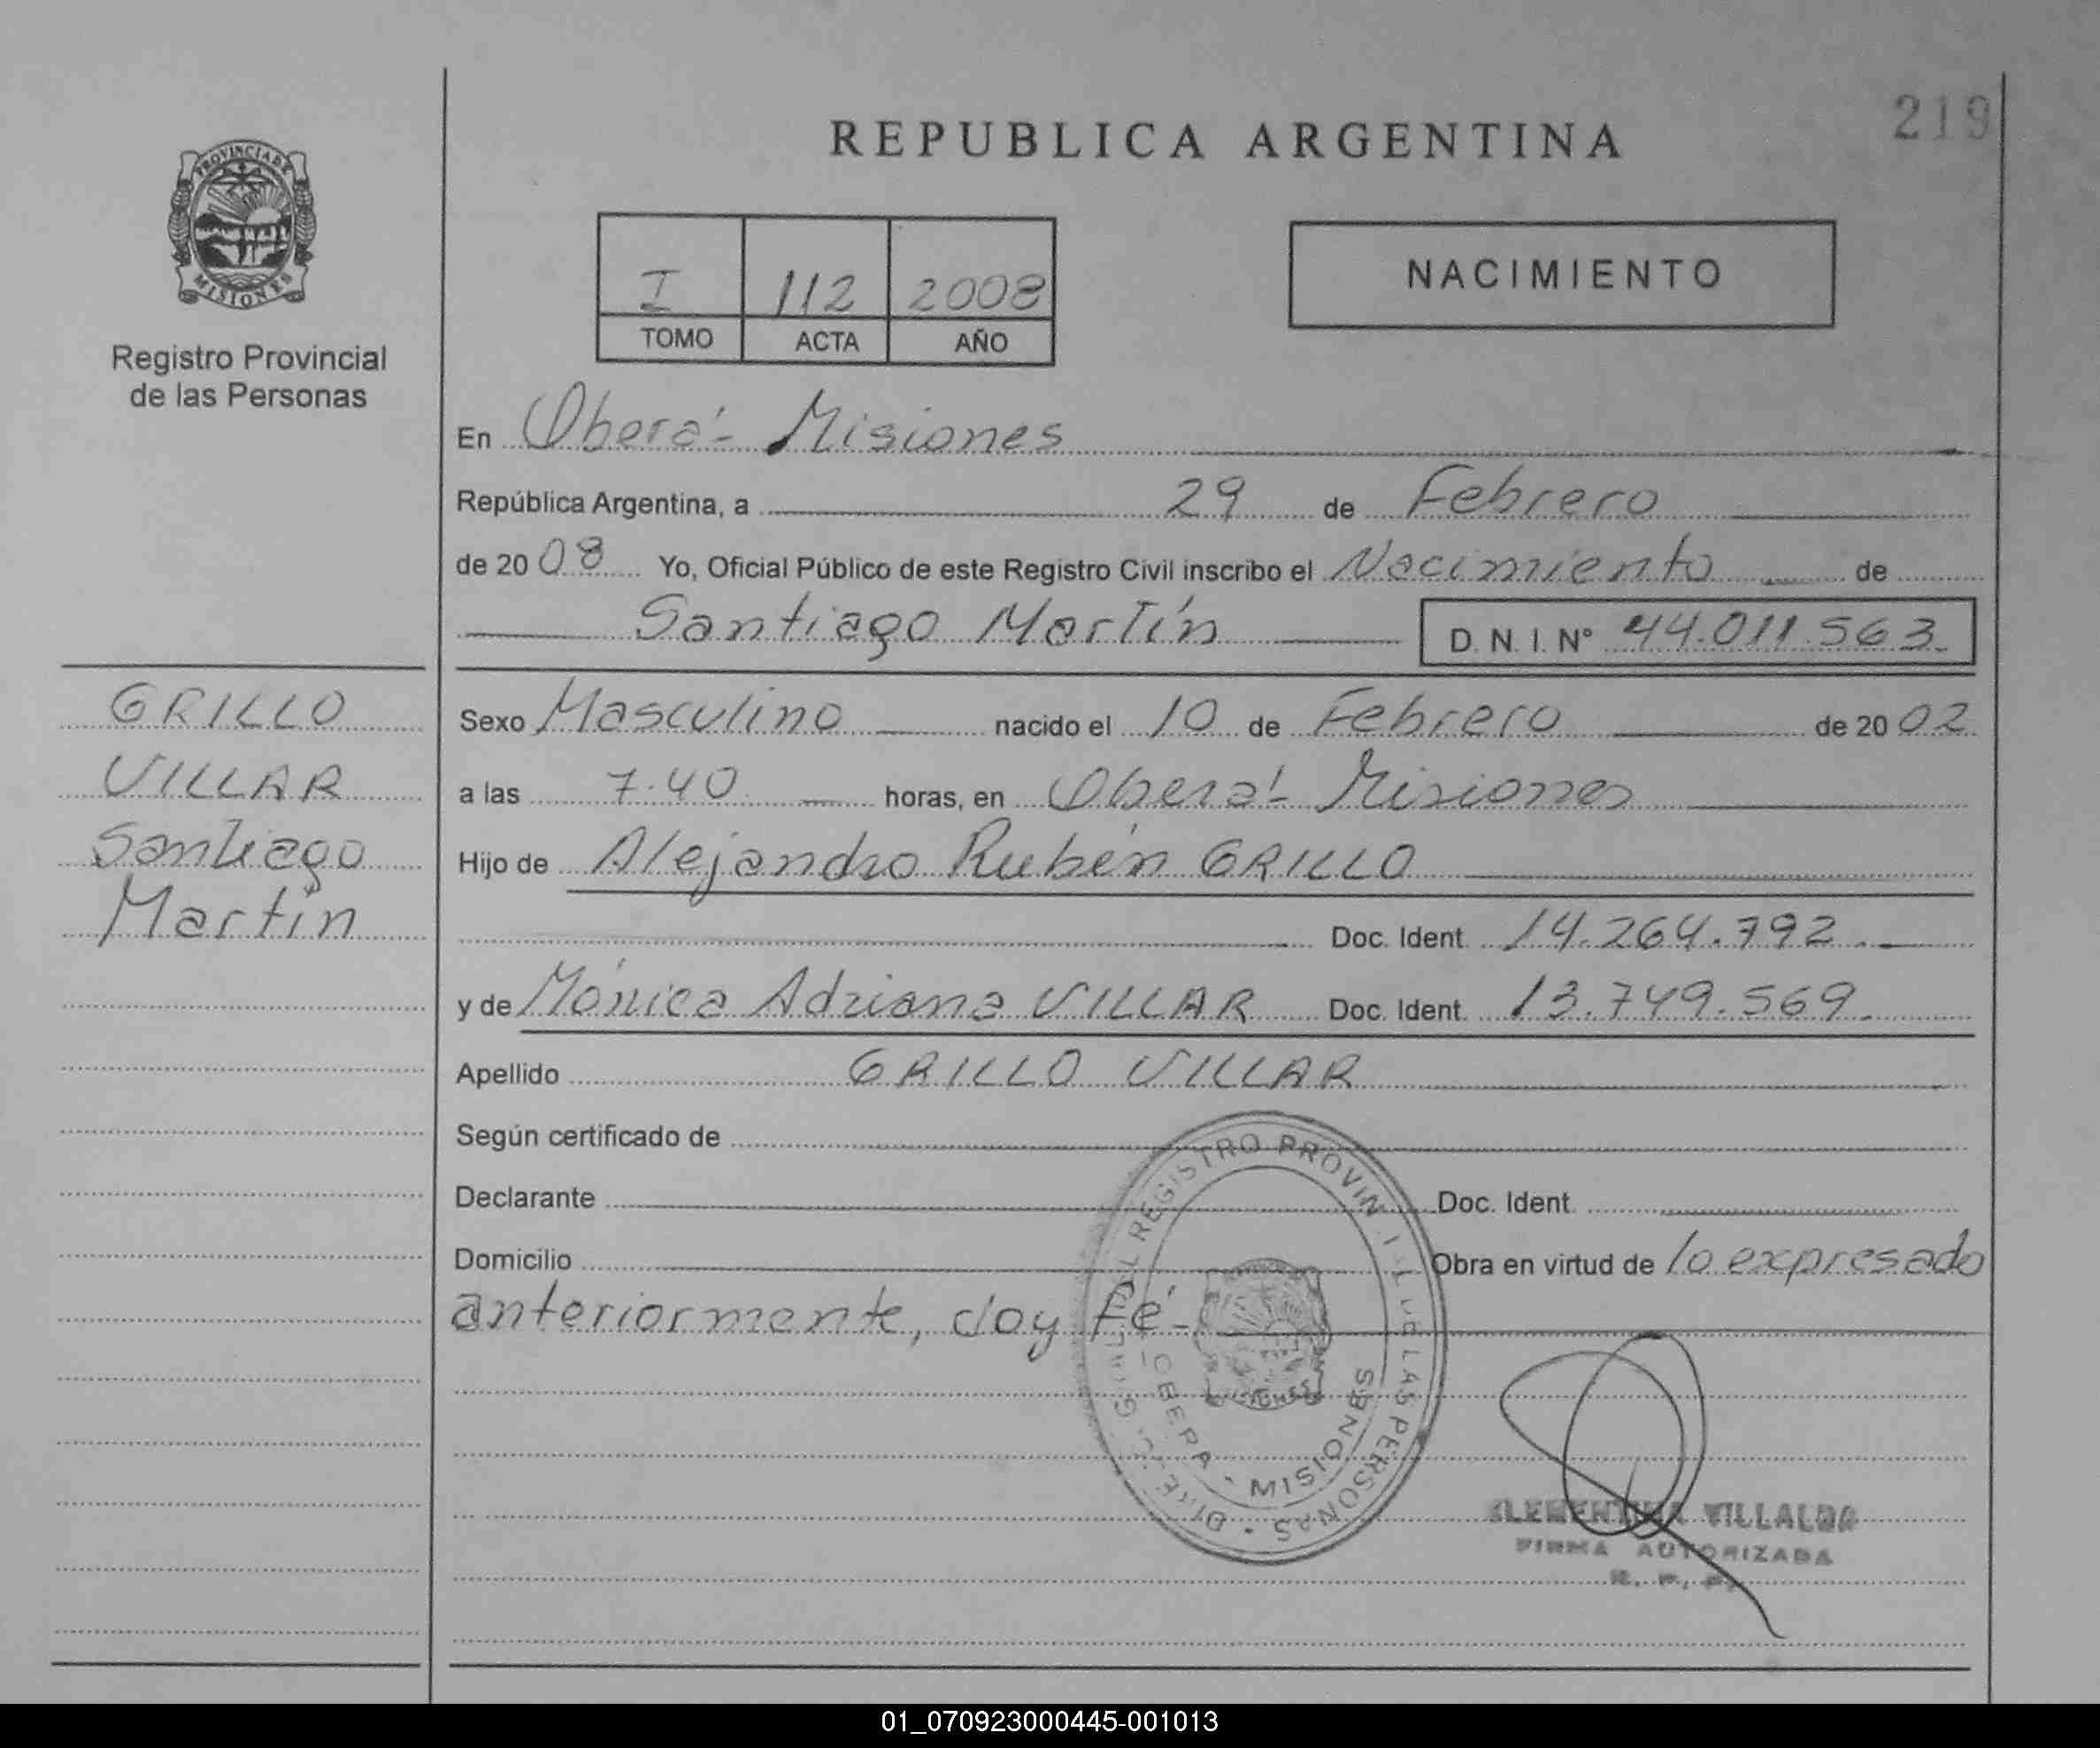 219
REPUBLICA ARGENTINA
PROVINCIA DE
MISIONES
Registro Provincial
de las Personas
I 112 2008
TOMO ACTA AÑO
NACIMIENTO
En Oberá - Misiones
República Argentina, a 29 de Febrero
de 2008 Yo, Oficial Público de este Registro Civil inscribo el Nacimiento de
Santiago Martín D. N. I. N° 44.011.563
GRILLO
VILLAR
Santiago
Martín
Sexo Masculino nacido el 10 de Febrero de 2002
a las 7.40 horas, en Oberá - Misiones
Hijo de Alejandro Rubén GRILLO
Doc. Ident. 14.264.792.
y de Mónica Adriana VILLAR Doc. Ident. 13.749.569.
Apellido GRILLO VILLAR
Según certificado de
Declarante Doc. Ident.
Domicilio Obra en virtud de lo expresado
anteriormente, doy Fé-
REGISTRO PROVINCIAL DE LAS PERSONAS
OBERA - MISIONES
CLEMENTINA VILLALBA
FIRMA AUTORIZADA
R. P. P.
01_070923000445-001013